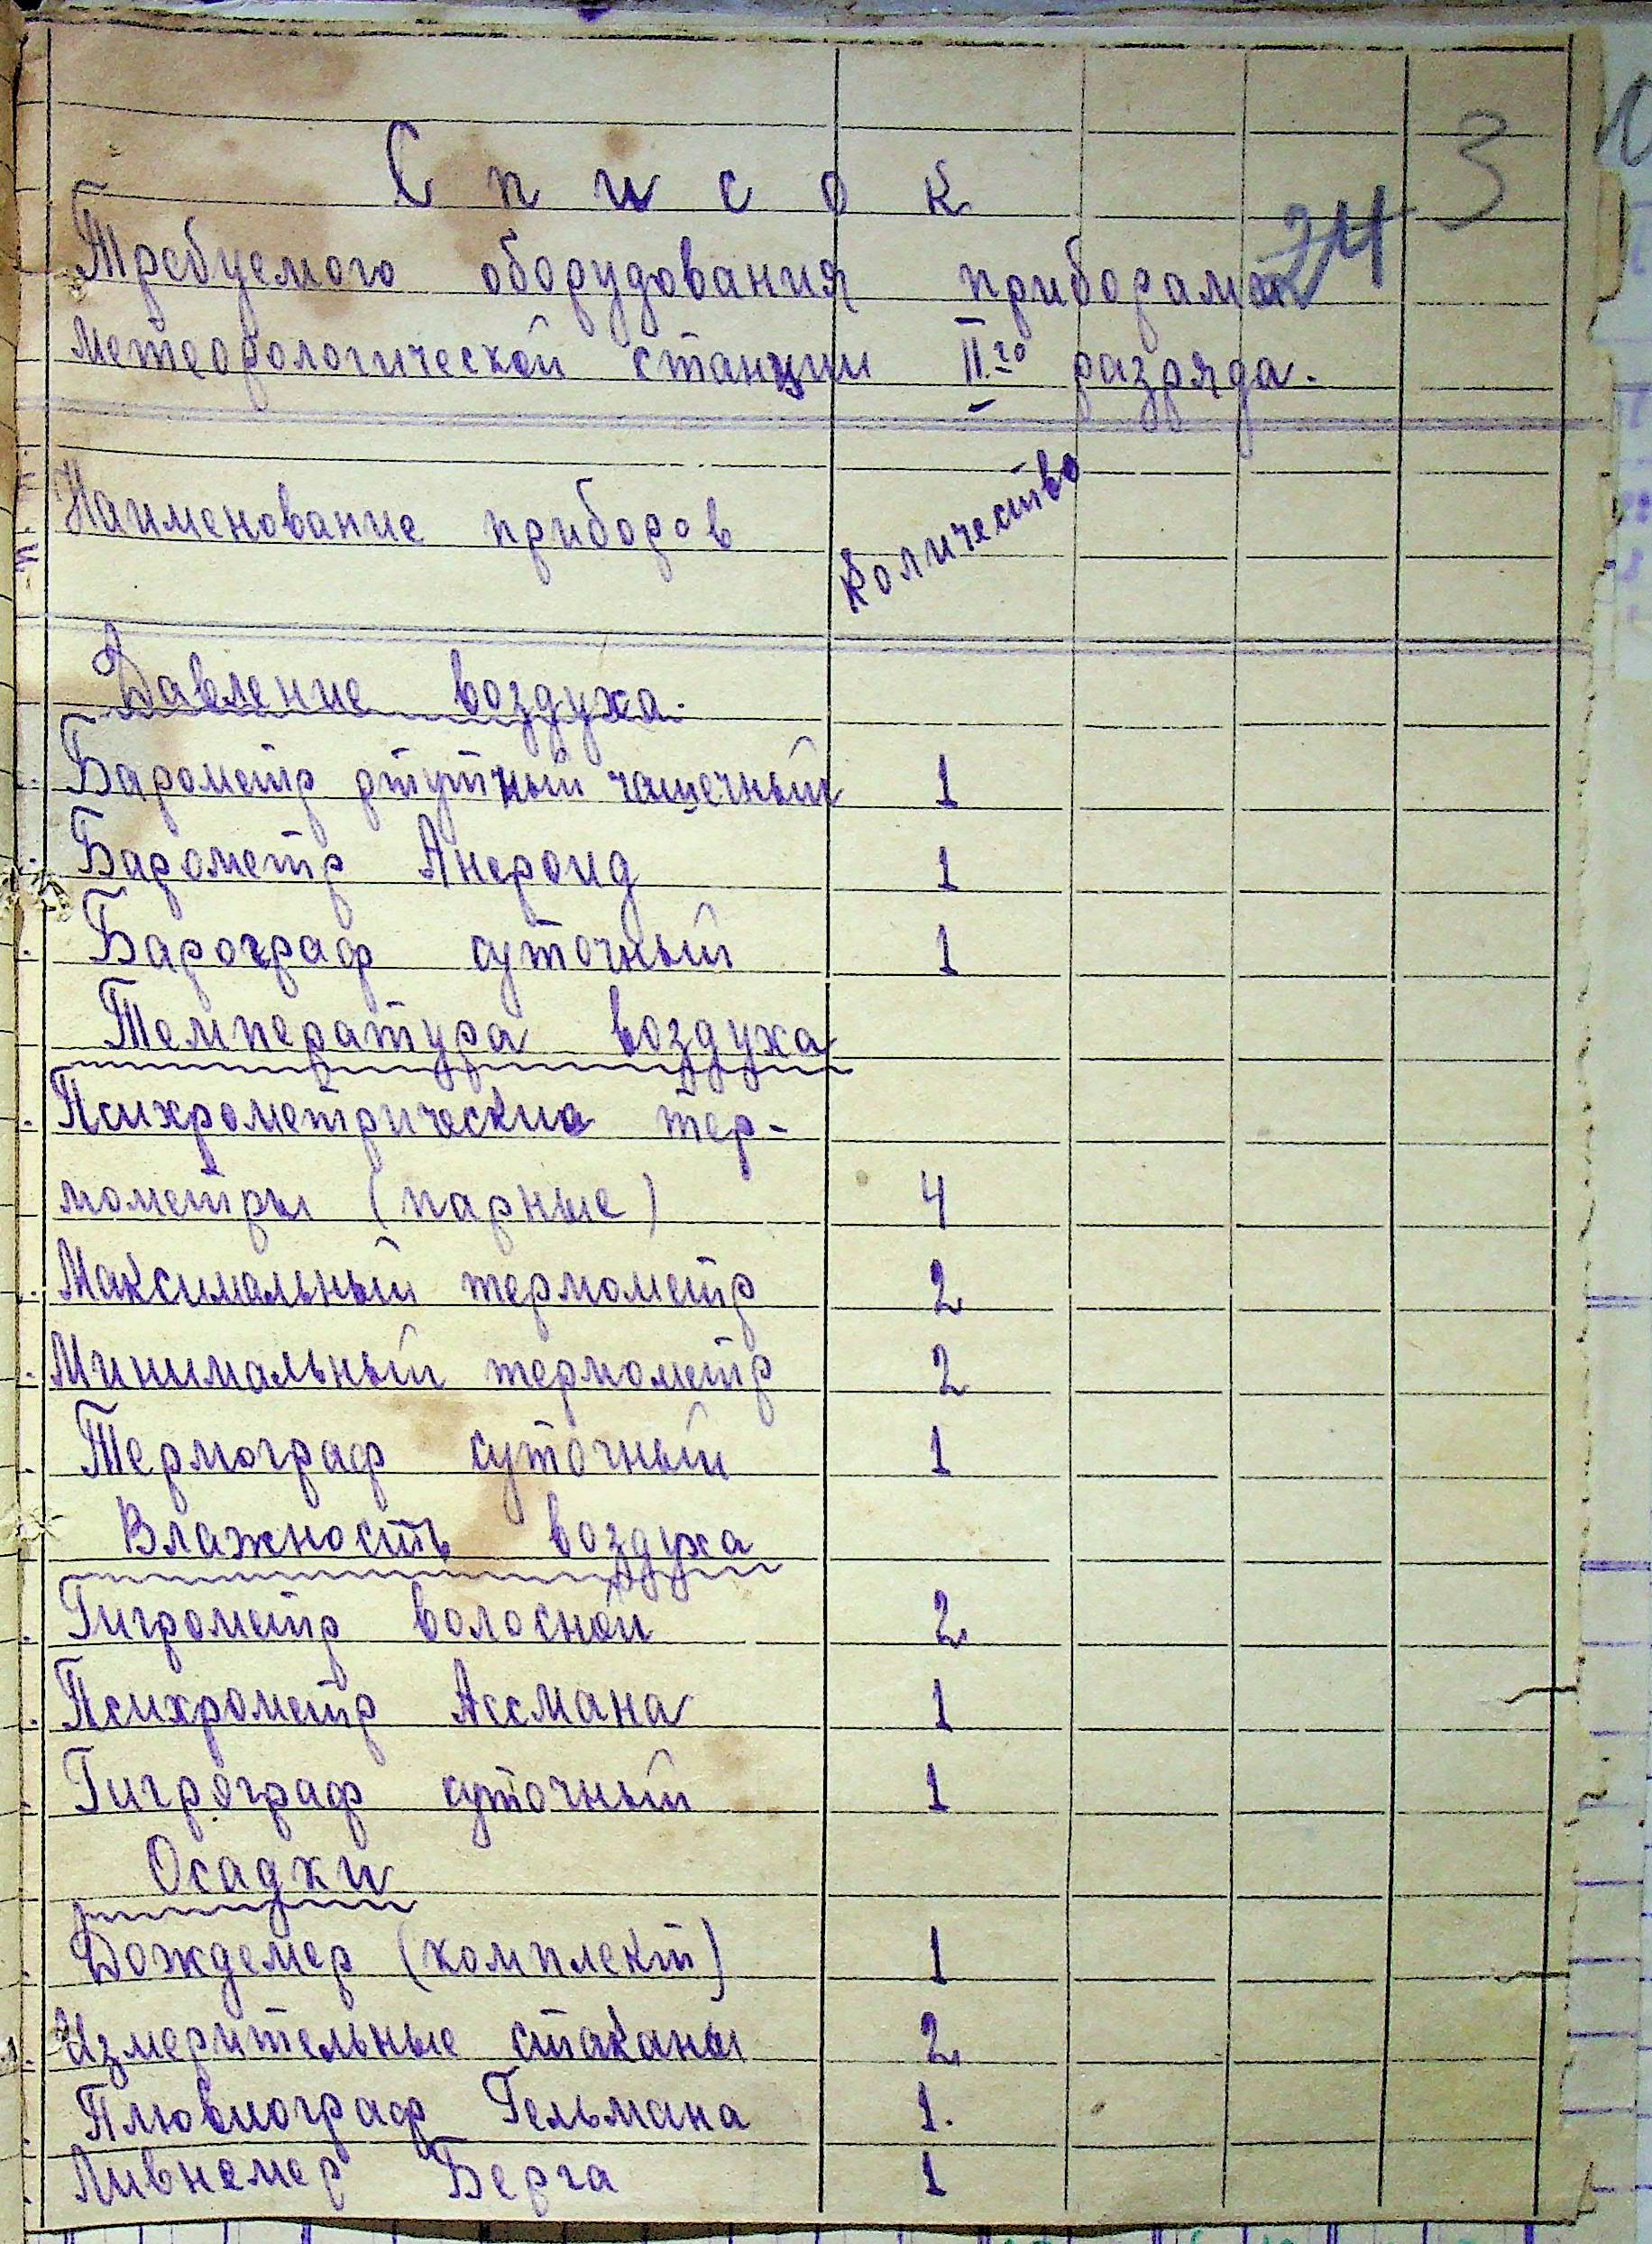 3
24
С п и с о к
Требуемого оборудования приборами
метеорологической станции II го разряда.
Наименование приборов Количество
Давление воздуха.
Барометр ртутный чашечный 1
Барометр Анероид 1
Барограф суточный 1
Температура воздуха
Психрометрические тер-
мометры (парные) 4
Максимальный термометр 2
Минимальный термометр 2
Термограф суточный 1
Влажность воздуха
Гигрометр волосной 2
Психрометр Ассмана 1
Гигрограф суточный 1
Осадки
Дождемер (комплект) 1
Измерительные стаканы 2
Плювиограф Гельмана 1.
Ливнемер Берга 1